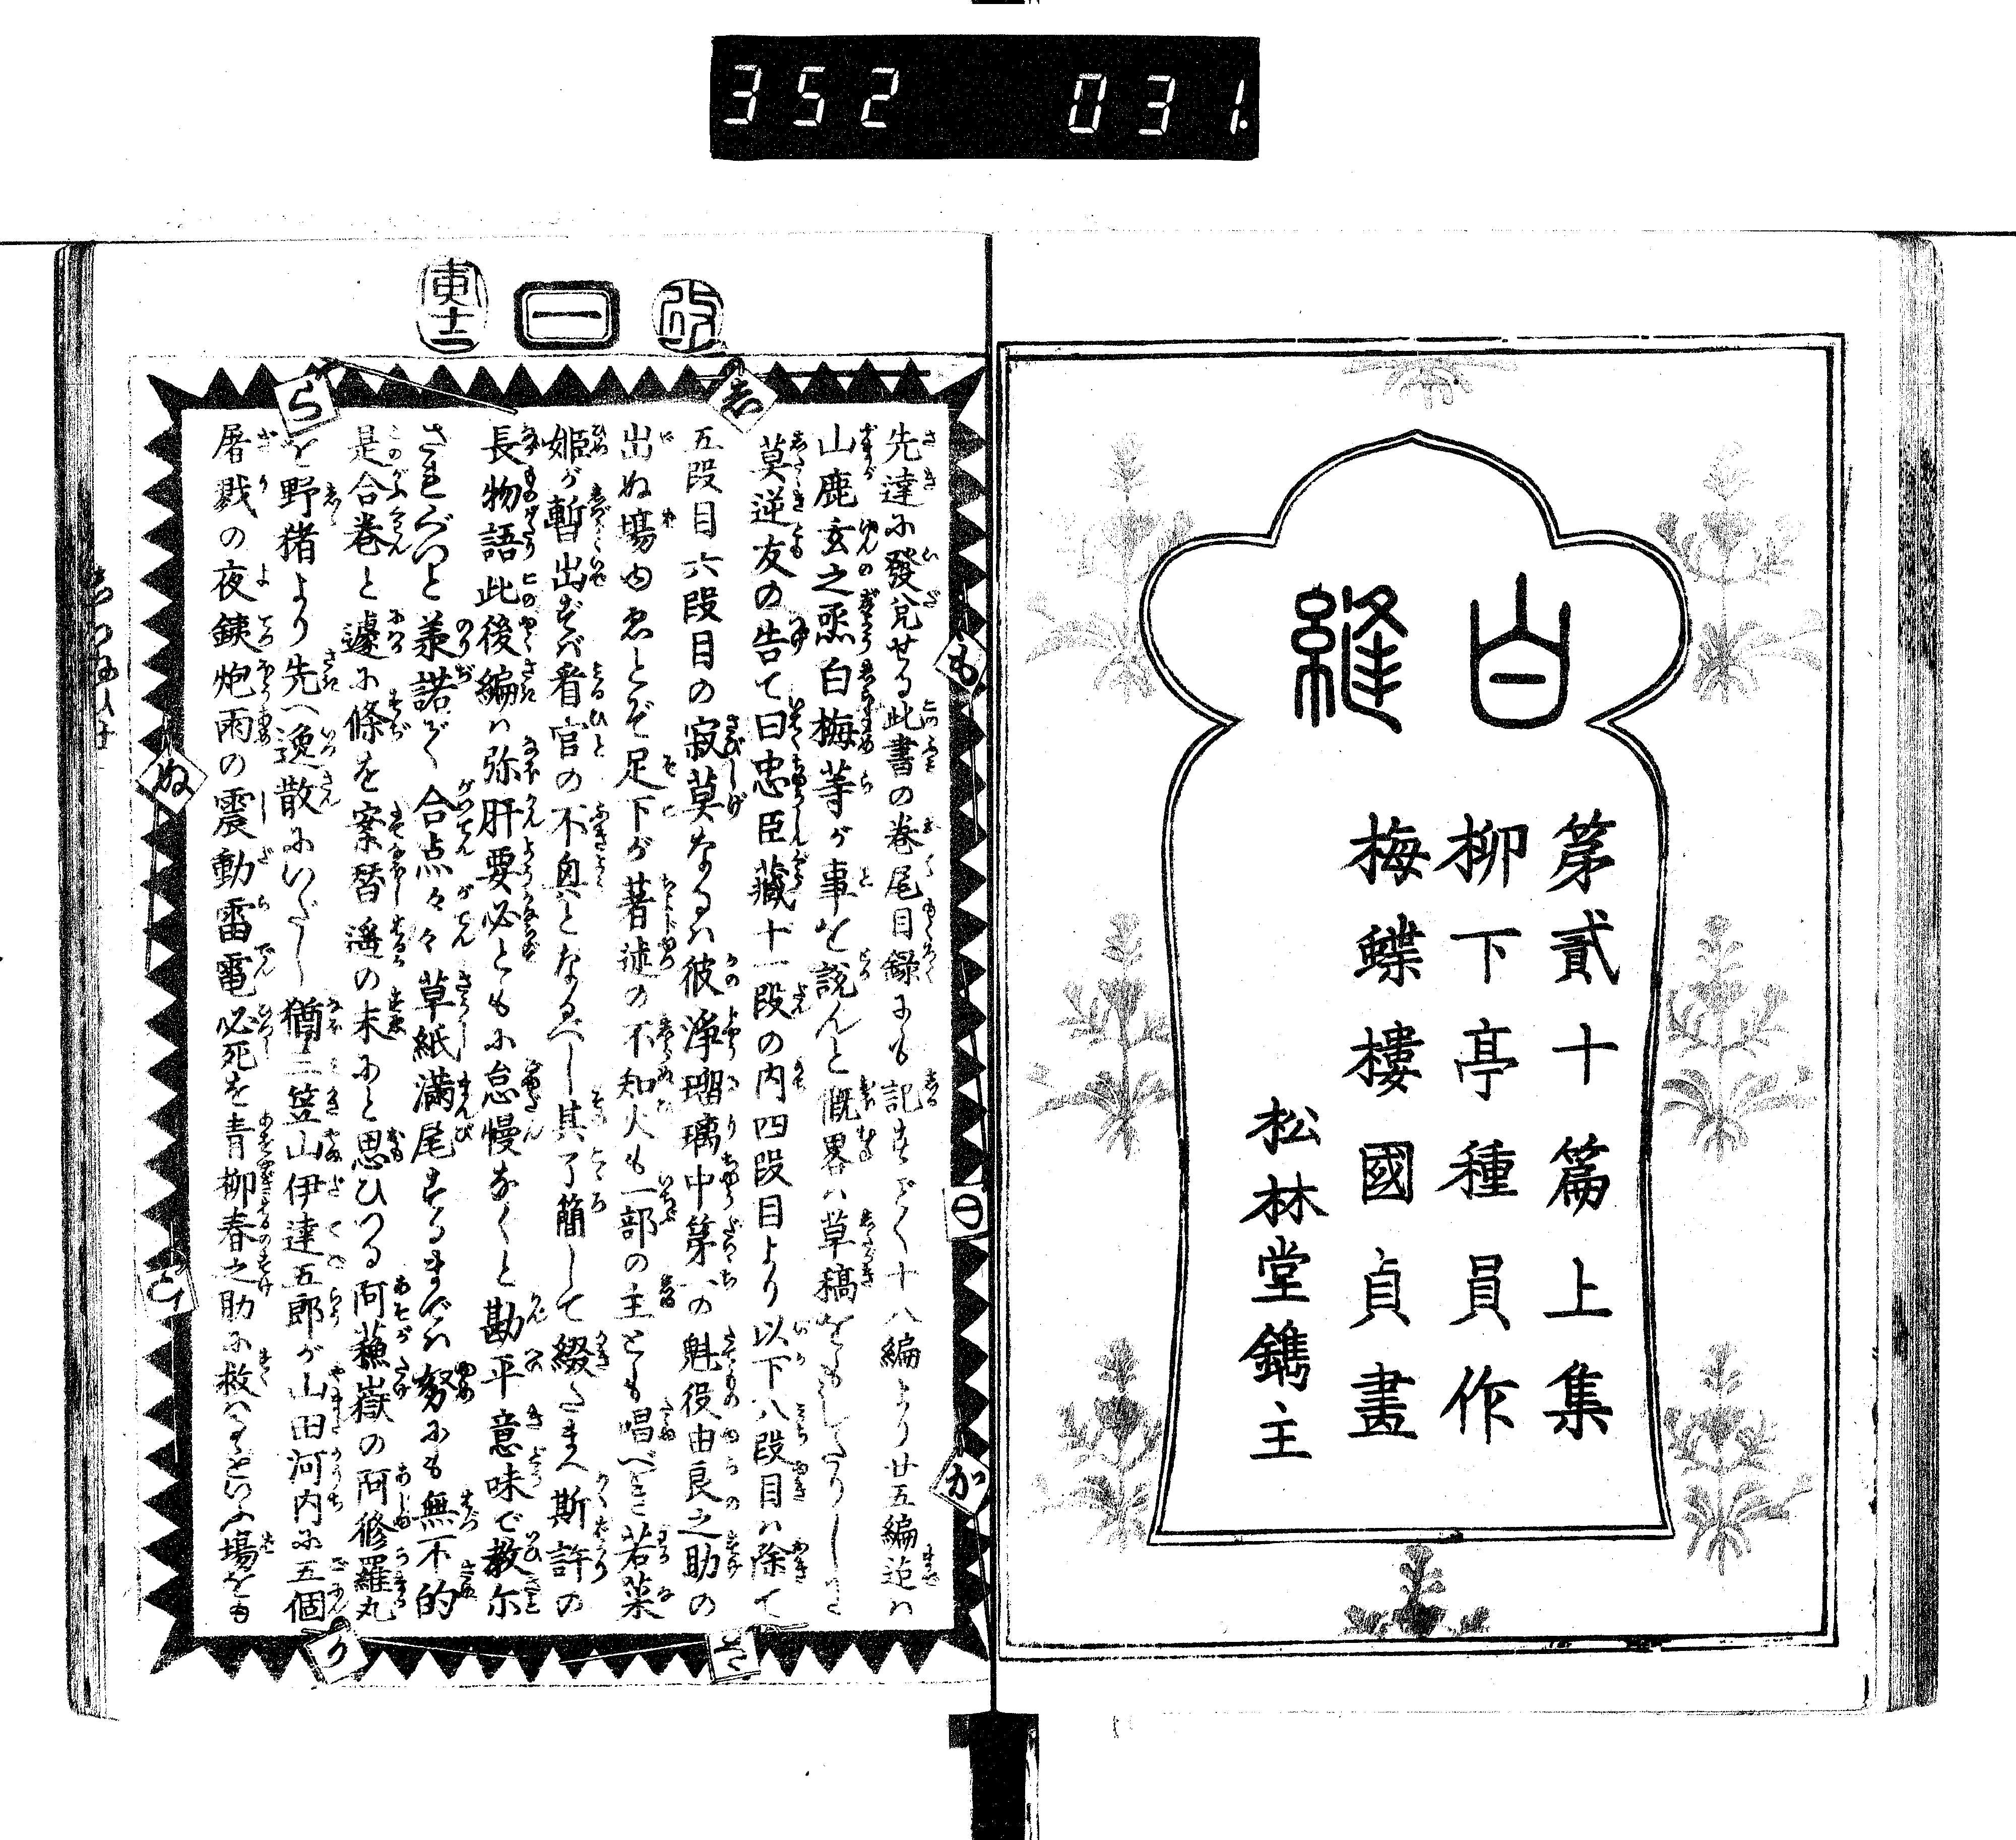 352 031.
白縫
第貳十篇上集
柳下亭種員作
梅蝶樓國貞畫
松林堂鐫主
改
一
寅十二
先達に發兌せる此書の巻尾目録にも記すごとく十八編より廿五編迄ハ
山鹿玄之丞白梅等が事を説んと概畧ハ草稿をも
莫逆友の告て曰忠臣藏十一段の内四段目より以下八段目ハ除て
五段目六段目の寂莫なるハ彼浄瑠璃中第一の魁役由良之助の
出ぬ場ゆゑとぞ足下が著述の不知火も一部の主とも唱べき若菜
姫が暫出ずバ看官の不興となるべし其了簡して綴たまへ斯許の
長物語此後編ハ弥肝要必ともに怠慢なくと勘平意味で教尓
承諾て合点々々草紙満尾するまでハ努にも無不的
是合巻と遽に條を案替遥の末にと思ひつる阿蘓嶽の阿修羅丸
を野猪より先へ逸散にいだし猶三笠山伊達五郎が山田河内に五個
屠戮の夜銕炮雨の震動雷電必死を青柳春之助に救ハるといふ場をも
も
か
ら
ぬ
り